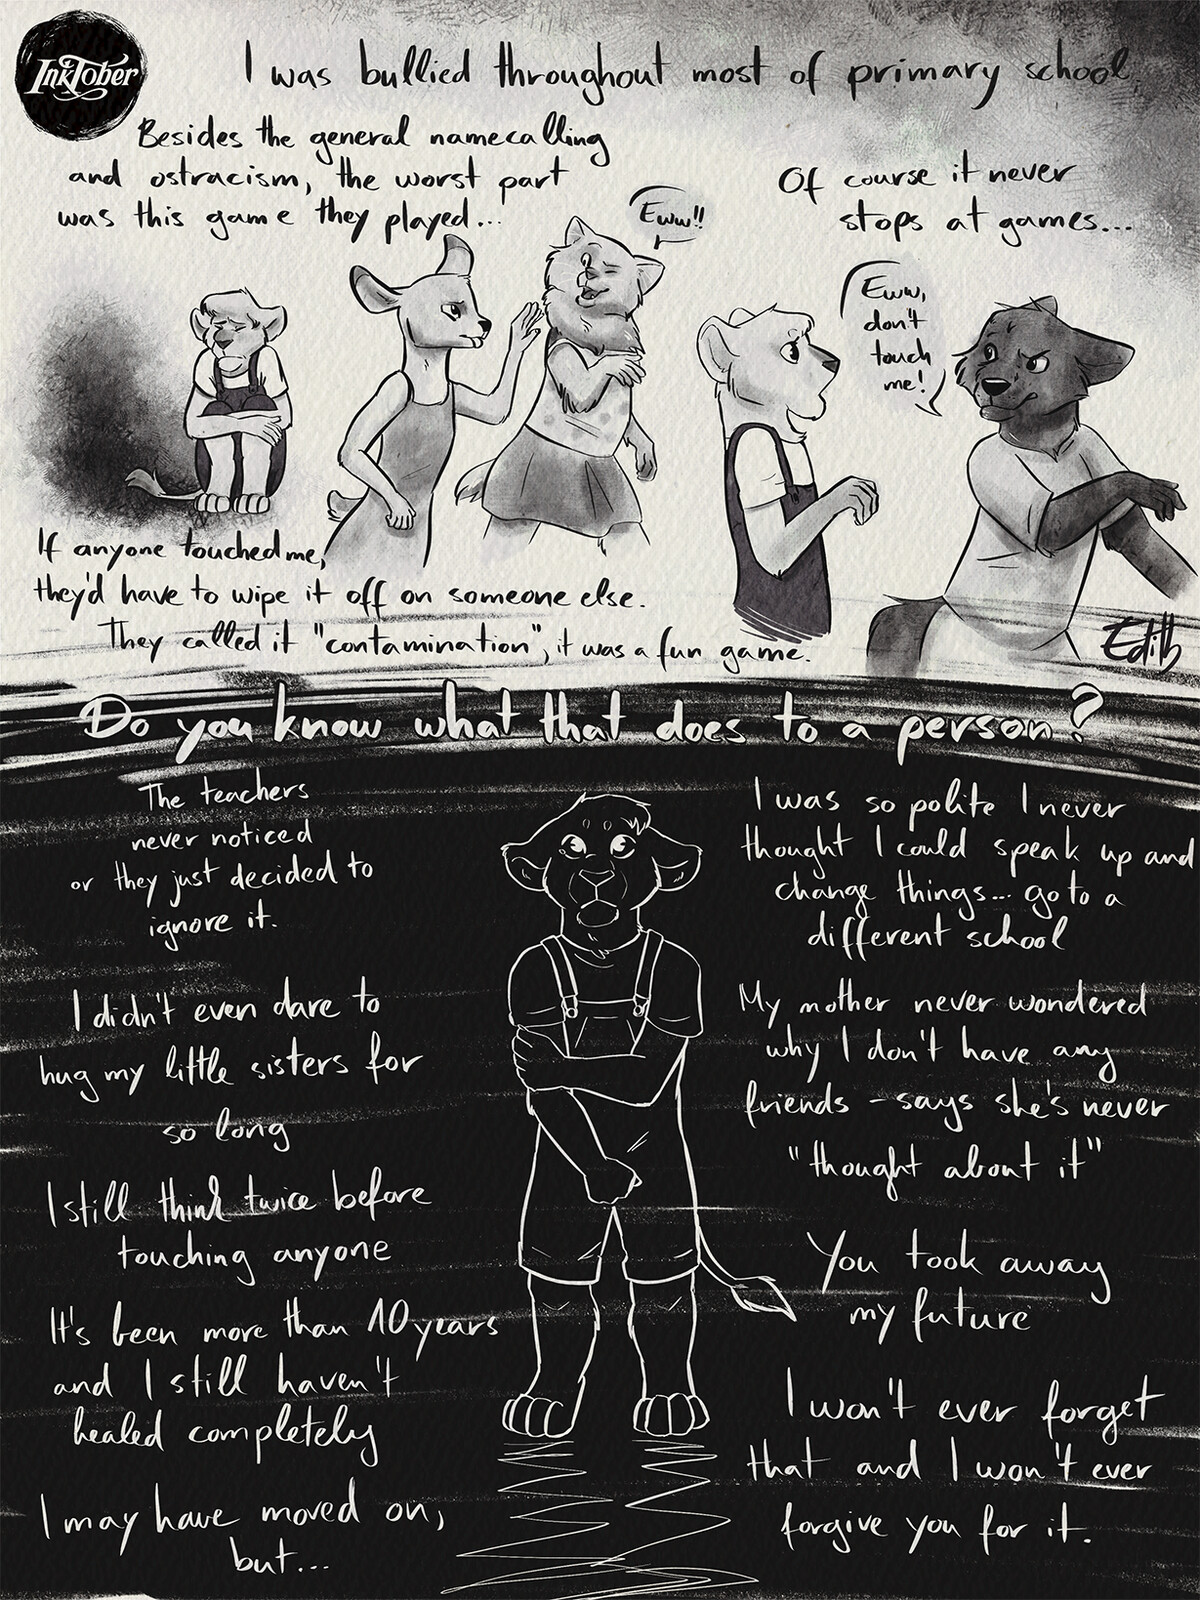 InkTober
I was bullied throughout most of primary school.
Besides the general namecalling
and ostracism, the worst part
was this game they played...
Eww!!
Of course it never
stops at games...
Eww,
don't
touch
me!
If anyone touched me,
they'd have to wipe it off on someone else.
They called it "contamination", it was a fun game.
Edith
Do you know what that does to a person?
The teachers
never noticed
or they just decided to
ignore it.
I didn't even dare to
hug my little sisters for
so long
I still think twice before
touching anyone
It's been more than 10 years
and I still haven't
healed completely
I may have moved on,
but...
I was so polite I never
thought I could speak up and
change things... go to a
different school
My mother never wondered
why I don't have any
friends - says she's never
"thought about it"
You took away
my future
I won't ever forget
that and I won't ever
forgive you for it.